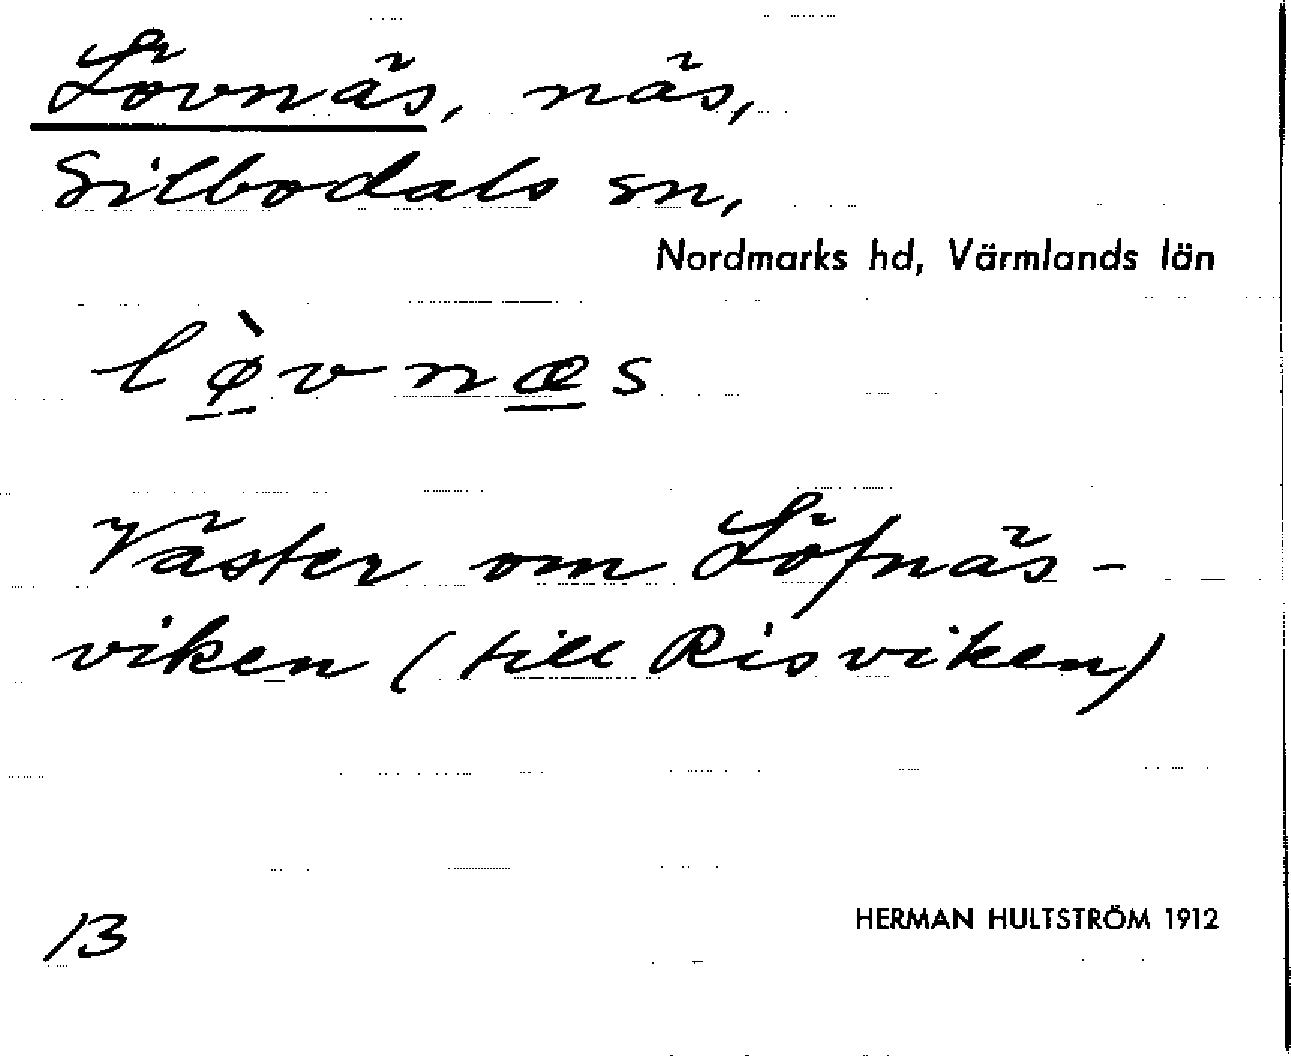 Lövnäs, näs,
Silbodals sn,
Nordmarks hd, Värmlands län
lø̀vnæs
Väster om Löfnäs-
viken (till Risviken)
13
HERMAN HULTSTRÖM 1912